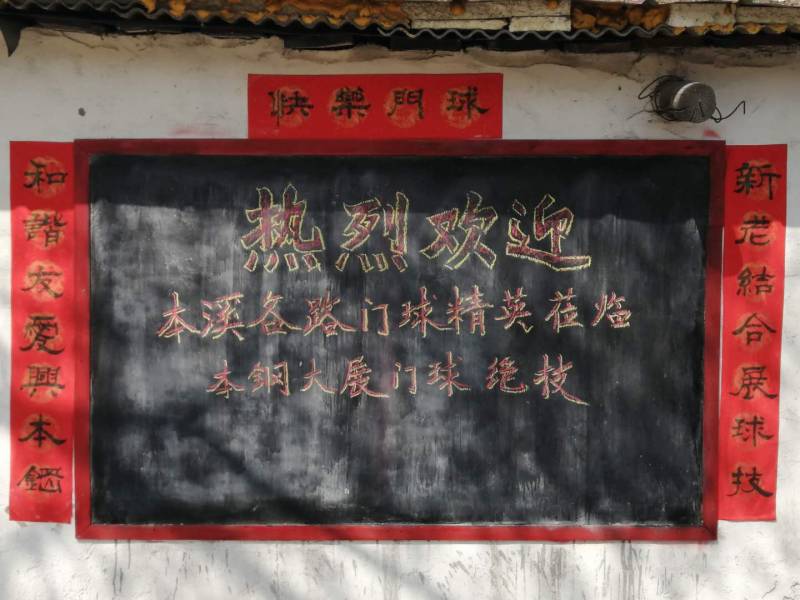 快樂門球
和諧友愛興本鋼
热烈欢迎
本溪各路门球精英莅临
本钢大展门球绝技
新老結合展球技